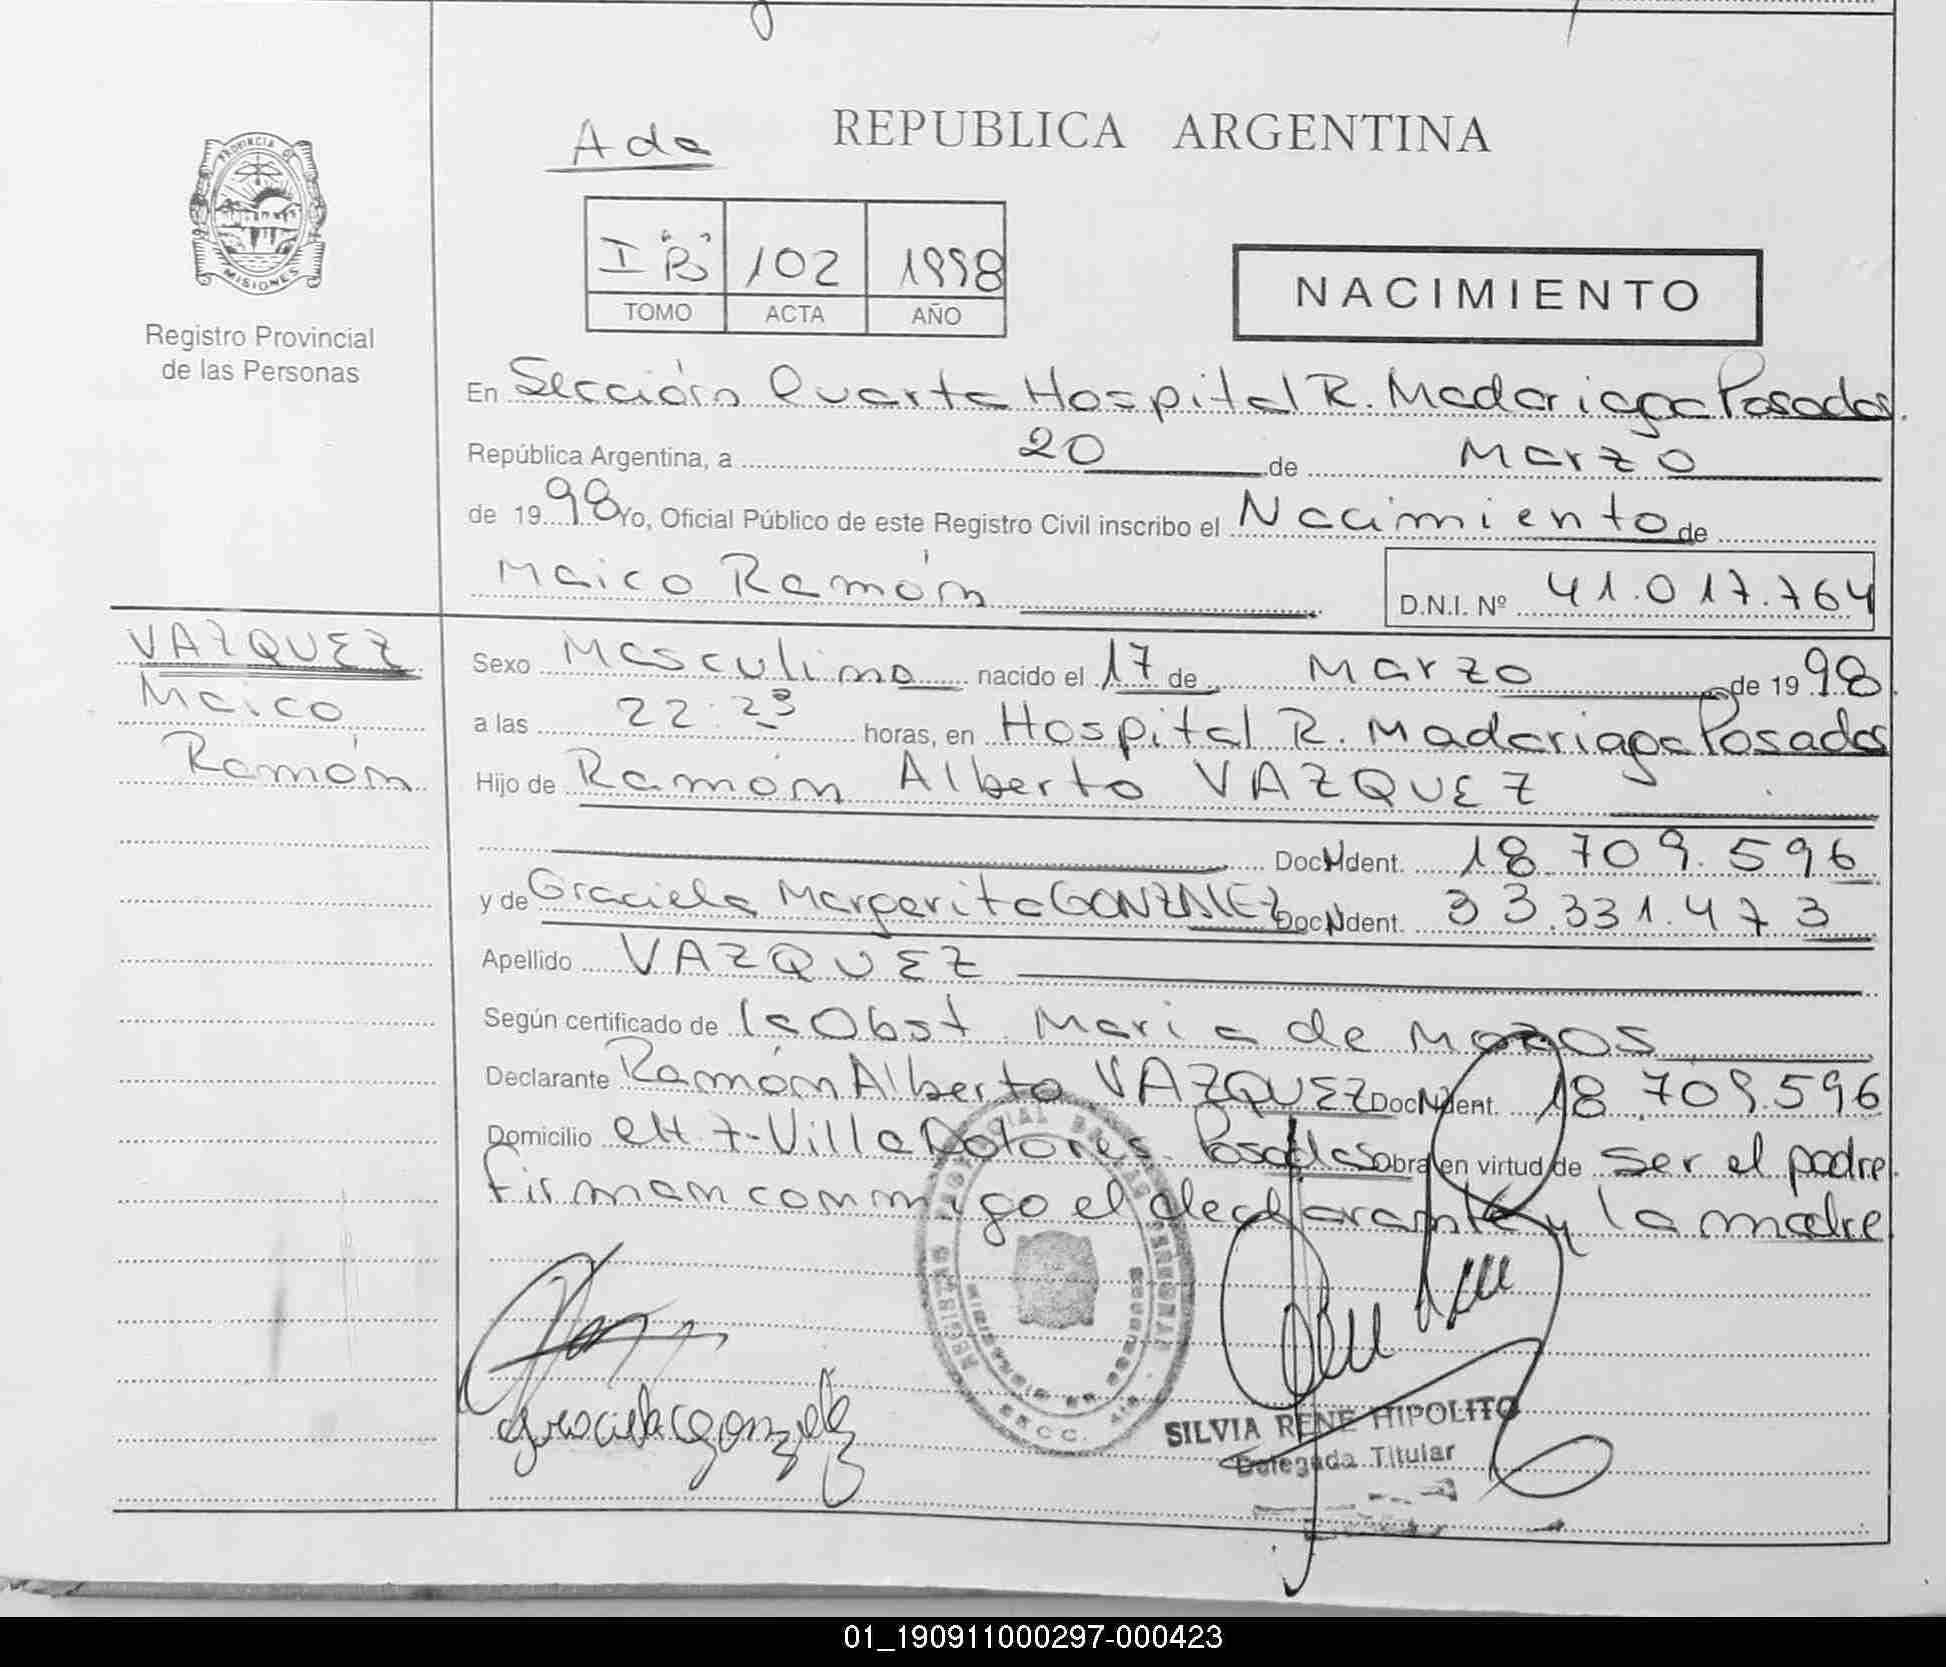 Ada
REPUBLICA ARGENTINA
PROVINCIA DE
MISIONES
Registro Provincial
de las Personas
I "B" 102 1998
TOMO ACTA AÑO
NACIMIENTO
En Sección Quarta Hospital R. Madariaga Posadas.
República Argentina, a 20 de Marzo
de 1998 Yo, Oficial Público de este Registro Civil inscribo el Nacimiento de
Maico Ramón D.N.I. Nº 41.017.764
VAZQUEZ
Maico
Ramón
Sexo Masculino nacido el 17 de Marzo de 1998
a las 22:23 horas, en Hospital R. Madariaga Posadas
Hijo de Ramón Alberto VAZQUEZ
Doc. Ident. 18.709.596
y de Graciela Margarita GONZALEZ Doc. Ident. 33.331.473
Apellido VAZQUEZ
Según certificado de la Obst. Maria de Mozos
Declarante Ramón Alberto VAZQUEZ Doc. Ident. 18.709.596
Domicilio 7- Villa Dolores - Posadas obra en virtud de ser el padre.
Firman conmigo el declarante y la madre
Graciela Gonzalez
SILVIA RENE HIPOLITO
Delegada Titular
01_190911000297-000423